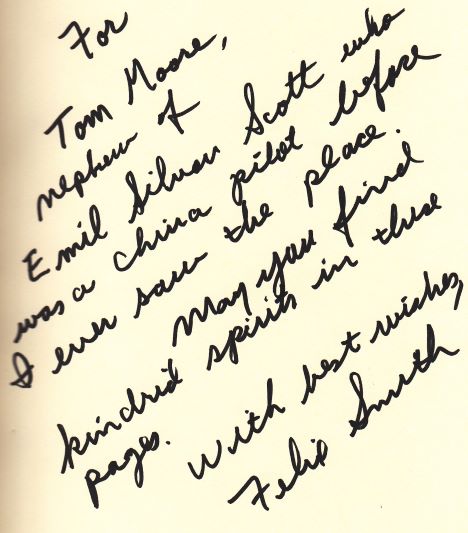 For
Tom Moore,
nephew of
Emil Silvan Scott who
was a China pilot before
I ever saw the place.
May you find
kindrid spirits in these
pages.
With best wishes,
Felix Smith